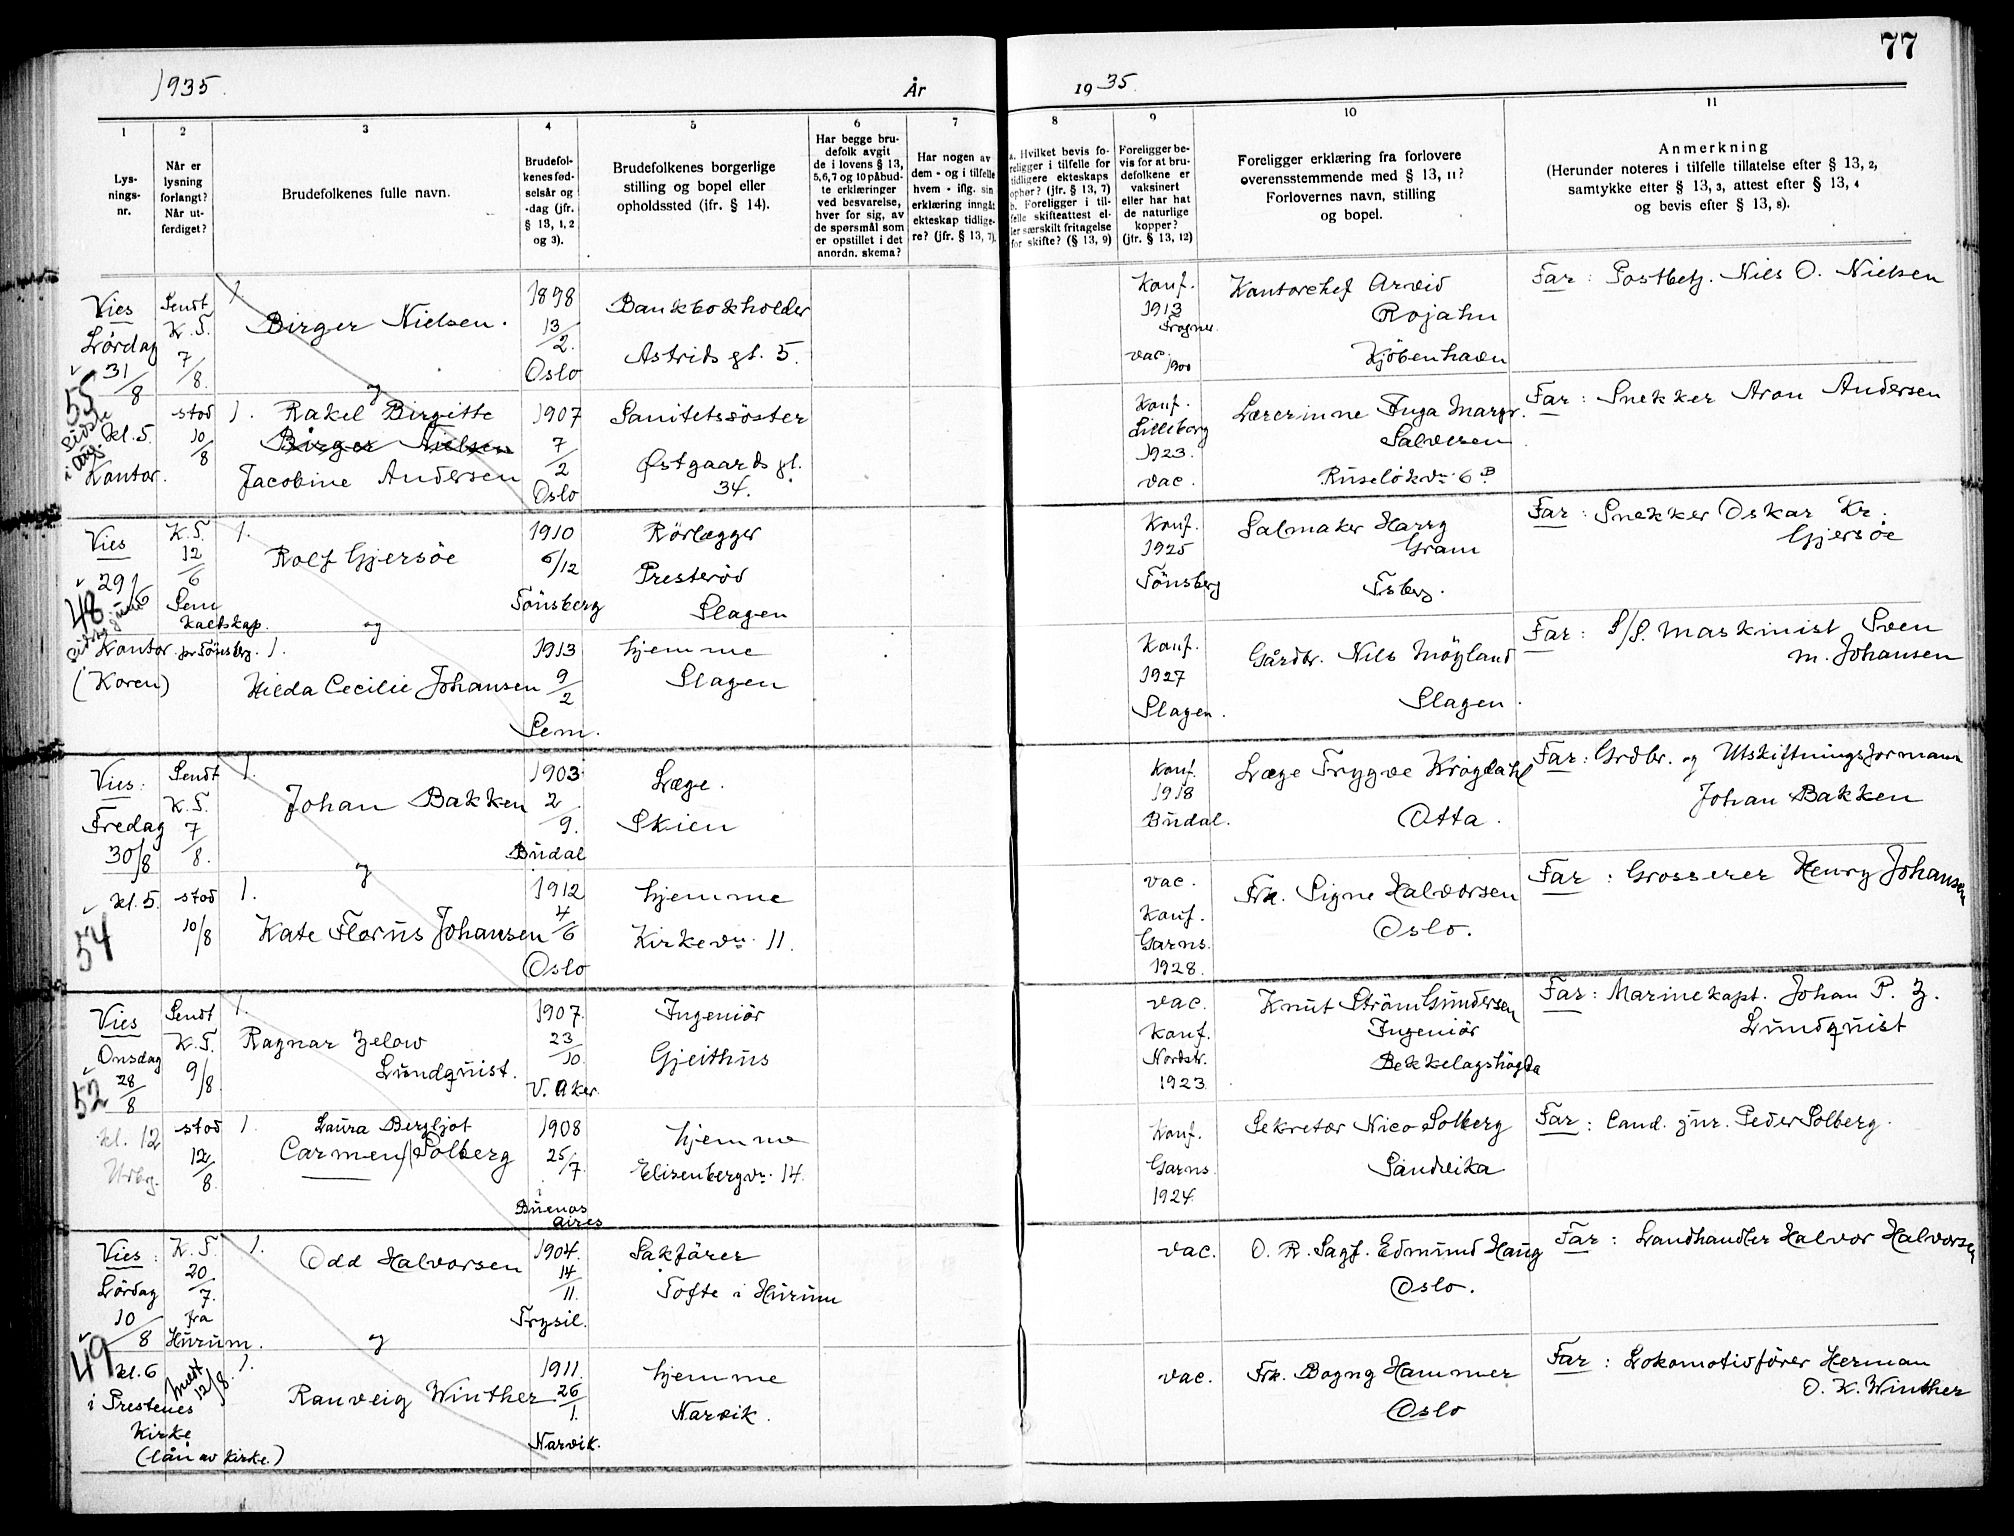 77
1935.
År
19 35.
1
2
3
4
5
6
7
8
9
10
11
Lys-
nings-
nr.
Når er
lysning
forlangt?
Når ut-
ferdiget?
Brudefolkenes fulle navn.
Brudefol-
kenes fød-
selsår og
-dag (jfr.
§ 13, 1, 2
og 3).
Brudefolkenes borgerlige
stilling og bopel eller
opholdssted (jfr. § 14).
Har begge bru-
defolk avgit
de i lovens § 13,
5,6,7 og 10 påbud-
te erklæringer
ved besvarelse,
hver for sig, av
de spørsmål som
er opstillet i det
anordn. skema?
Har nogen av
dem - og i tilfelle
hvem - iflg. sin
erklæring inngåt
ekteskap tidlige-
re? (jfr. § 13, 7).
a. Hvilket bevis fo-
religger i tilfelle for
tidligere ekteskaps
ophør? (jfr. § 13, 7)
b. Foreligger i til-
felle skifteattest el-
ler særskilt fritagelse
for skifte? (§ 13, 9)
Foreligger be-
vis for at bru-
defolkene er
vaksinert
eller har hat
de naturlige
kopper?
(jfr. § 13, 12)
Foreligger erklæring fra forlovere
overensstemmende med § 13, 11?
Forlovernes navn, stilling
og bopel.
Anmerkning
(Herunder noteres i tilfelle tillatelse efter § 13, 2,
samtykke efter § 13, 3, attest efter § 13, 4
og bevis efter § 13, 8).
Vies
Lördag
31/8
55
sidste
i aug.
kl. 5.
Kontor.
Sendt
K. T.
7/8.
stod
10/8
1.
Birger Nielsen.
og
1. Rakel Birgitte
Birger Nielsen
Jacobine Andersen
1898
13/2.
Oslo
1907
7/2
Oslo
Bankbokholder
Astrids gt. 5.
Sanitetssöster
Østgaards gt.
34.
Konf.
1913
Frogner.
vac.
1900
Konf.
Lilleborg
1923.
vac.
Kontorchef Arvid
Rojahn
Kjöbenhavn
Lærerinne Inga Margr.
Salvesen
Ruselökvn. 6 B
Far: Postbetj. Nils O. Nielsen
Far: Snekker Aron Andersen
Vies
29/6
48
sidste juni
Kontor
(Koren)
K. T.
12/6
Sem
kallskap.
pr Tönsbg.
1.
Rolf Gjersöe
og
1.
Hilda Cecilie Johansen
1910
6/12
Tönsberg
1913
9/2
Sem.
Rörlegger
Presteröd
Slagen
hjemme
Slagen
Konf.
1925
Tönsberg
Konf.
1927
Slagen.
Salmaker Harry
Gram
Tsberg.
Gårdbr. Nils Möyland
Slagen.
Far: Snekker Oskar Kr.
Gjersöe
Far: S/S. Maskinist Sven
M. Johansen
Vies:
Fredag
30/8
kl. 5.
54
Sendt
K. T.
7/8.
stod
10/8
1.
Johan Bakken
og
1.
Kate Florus Johansen
1903
2/9.
Budal
1912
4/6
Oslo
Læge.
Skien
hjemme
Kirkevn. 11.
Konf.
1918
Budal.
vac.
Konf.
Garns.
1928.
Læge Trygve Krogdahl
Otta.
Frk. Signe Halvorsen
Oslo.
Far: Grdbr. og Utskiftningsformann
Johan Bakken
Far: Grosserer Henry Johansen
Vies
Onsdag
28/8
52
kl. 12
Urbg.
Sendt
K. T.
9/8.
stod
12/8.
1.
Ragnar Zelow
Lundquist.
1. Laura Bergljot
Carmen Solberg
1907
23/10.
V. Aker
1908
25/7.
Buenos
Aires
Ingeniör
Gjeithus
hjemme
Elisenbergvn. 14.
vac.
Konf.
Nordstr.
1923
Konf.
Garns.
1924.
Knut Ström Gundersen
Ingeniör
Bekkelagshögda
Sekretær Nico Solberg
Sandvika
Far: Marinekapt. Johan P. Z.
Lundquist
Far: Cand. jur. Peder Solberg.
Vies:
Lördag
10/8
49
kl. 6
i Prestenes
Kirke
(lån av kirke.)
K. T.
20/7.
fra
Hurum.
12/8.
1.
Odd Halvorsen
og
1.
Ranveig Winther
1904.
14/11.
Trysil.
1911.
26/1.
Narvik.
Sakförer
Tofte i Hurum
hjemme
Narvik.
vac.
vac.
O. R. Sagf. Edmund Haug
Oslo.
Frk. Bogny Hammer
Oslo
Far: Landhandler Halvor Halvorsen
Far: Lokomotivförer Herman
O. K. Winther